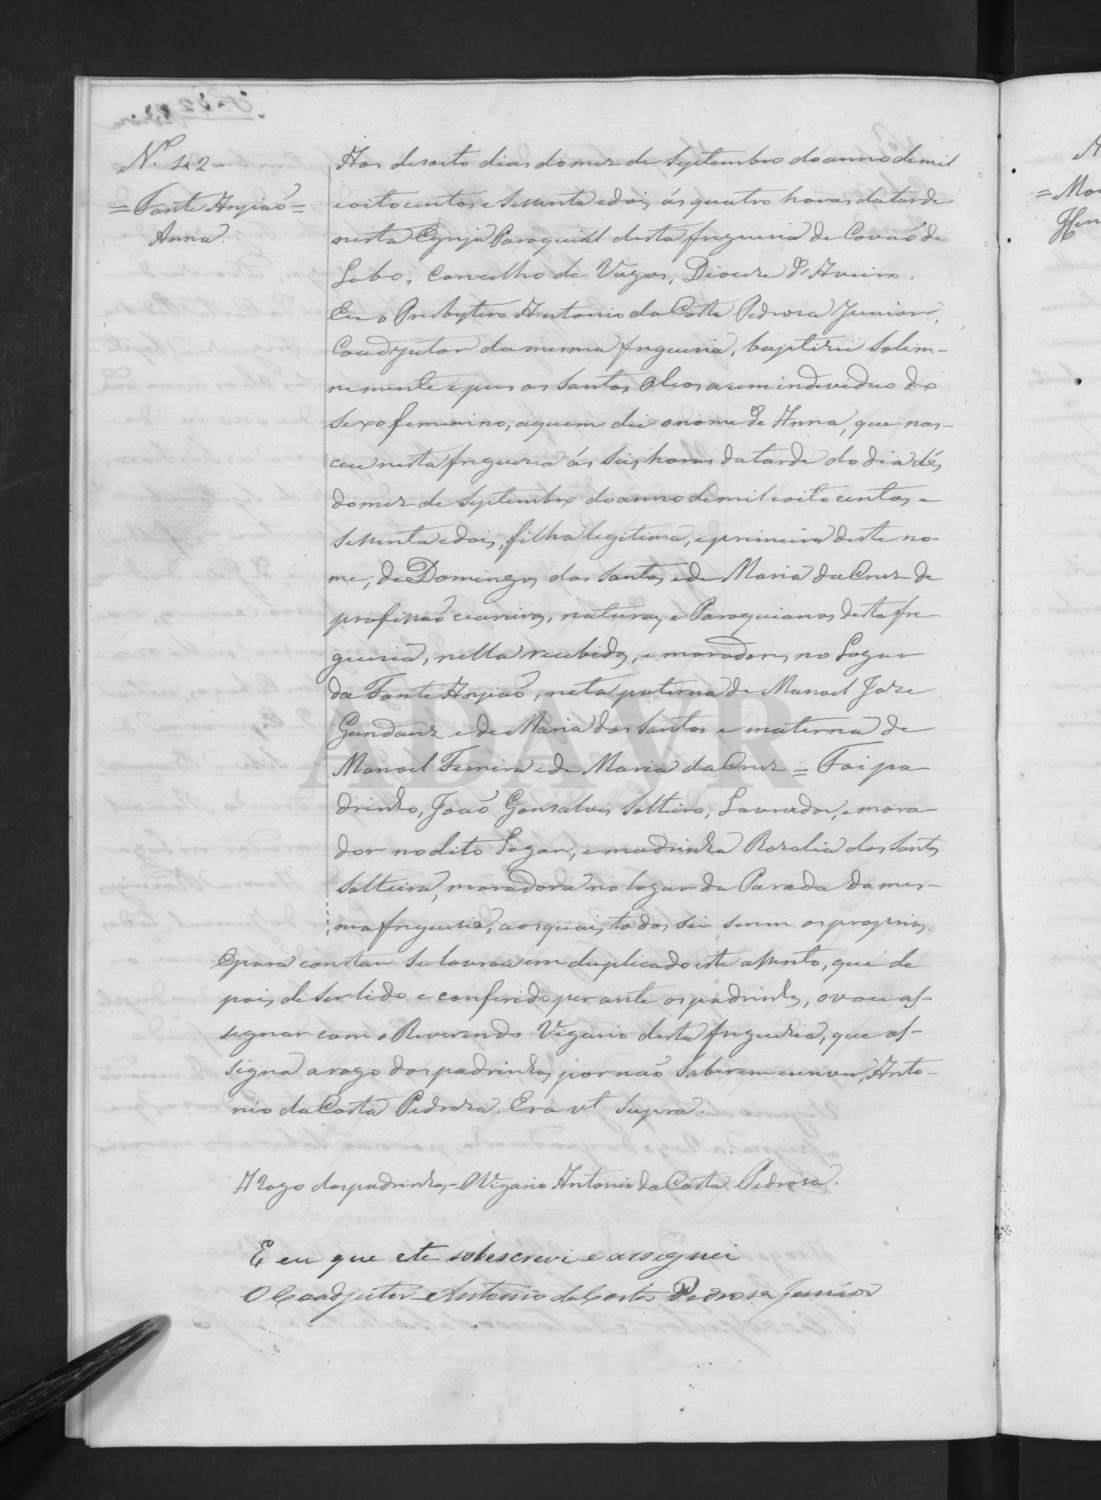 N.º 42
= Fonte Anjiaõ =
Anna
Aos desoito dias do mez de Septembro do anno de mil
e oito centos e sessenta e dois, ás quatro horas da tarde
nesta Egreja Paroquial desta freguesia de Covaõ do
Lobo, Concelho de Vagos, Diocese d'Aveiro.
Eu o Presbytero Antonio da Costa Pedrosa Junior,
Coadjutor da mesma freguesia, baptisei Solem-
nemente e pus os Santos Oleos a um individuo do
Sexo femenino, a quem dei o nome de Anna, que nas-
ceu nesta freguesia ás seis horas da tarde do dia dés
do mez de Septembro do anno de mil e oito centos e
sessenta e dois, filha legitima, e primeira deste no-
me, de Domingos dos Santos e de Maria da Cruz de
profissaõ , naturaes e Paroquianos desta fre
guesia, nella recebidos, e moradores no Logar
da Fonte Anjiaõ, neta paterna de Manoel Joze
Gandarez e de Maria dos Santos e materna de
Manoel Ferreira e de Maria da Cruz = Foi pa
drinho, Joaõ Gonsalves Solteiro, Lavrador, e mora
dor no dito Logar, e madrinha Rozalia dos Santos
Solteira, moradora no logar da Parada da mes-
ma freguesia, aos quais todos sei serem os proprios.
E para constar se lavrou em duplicado este assento, que de
pois de ser lido e conferido perante os padrinhos, o vou as-
segnar com o Reverendo Vigario desta freguesia, que as-
signa a rogo dos padrinhos, por naõ saberem escrever, Anto-
nio da Costa Pedroza. Era ut supra.
A rogo dos padrinhos - O Vigario Antonio da Costa Pedrosa.
E eu que este sobescrevi e assegnei
O Coadjutor Antonio da Costa Pedrosa Junior
ADAVR